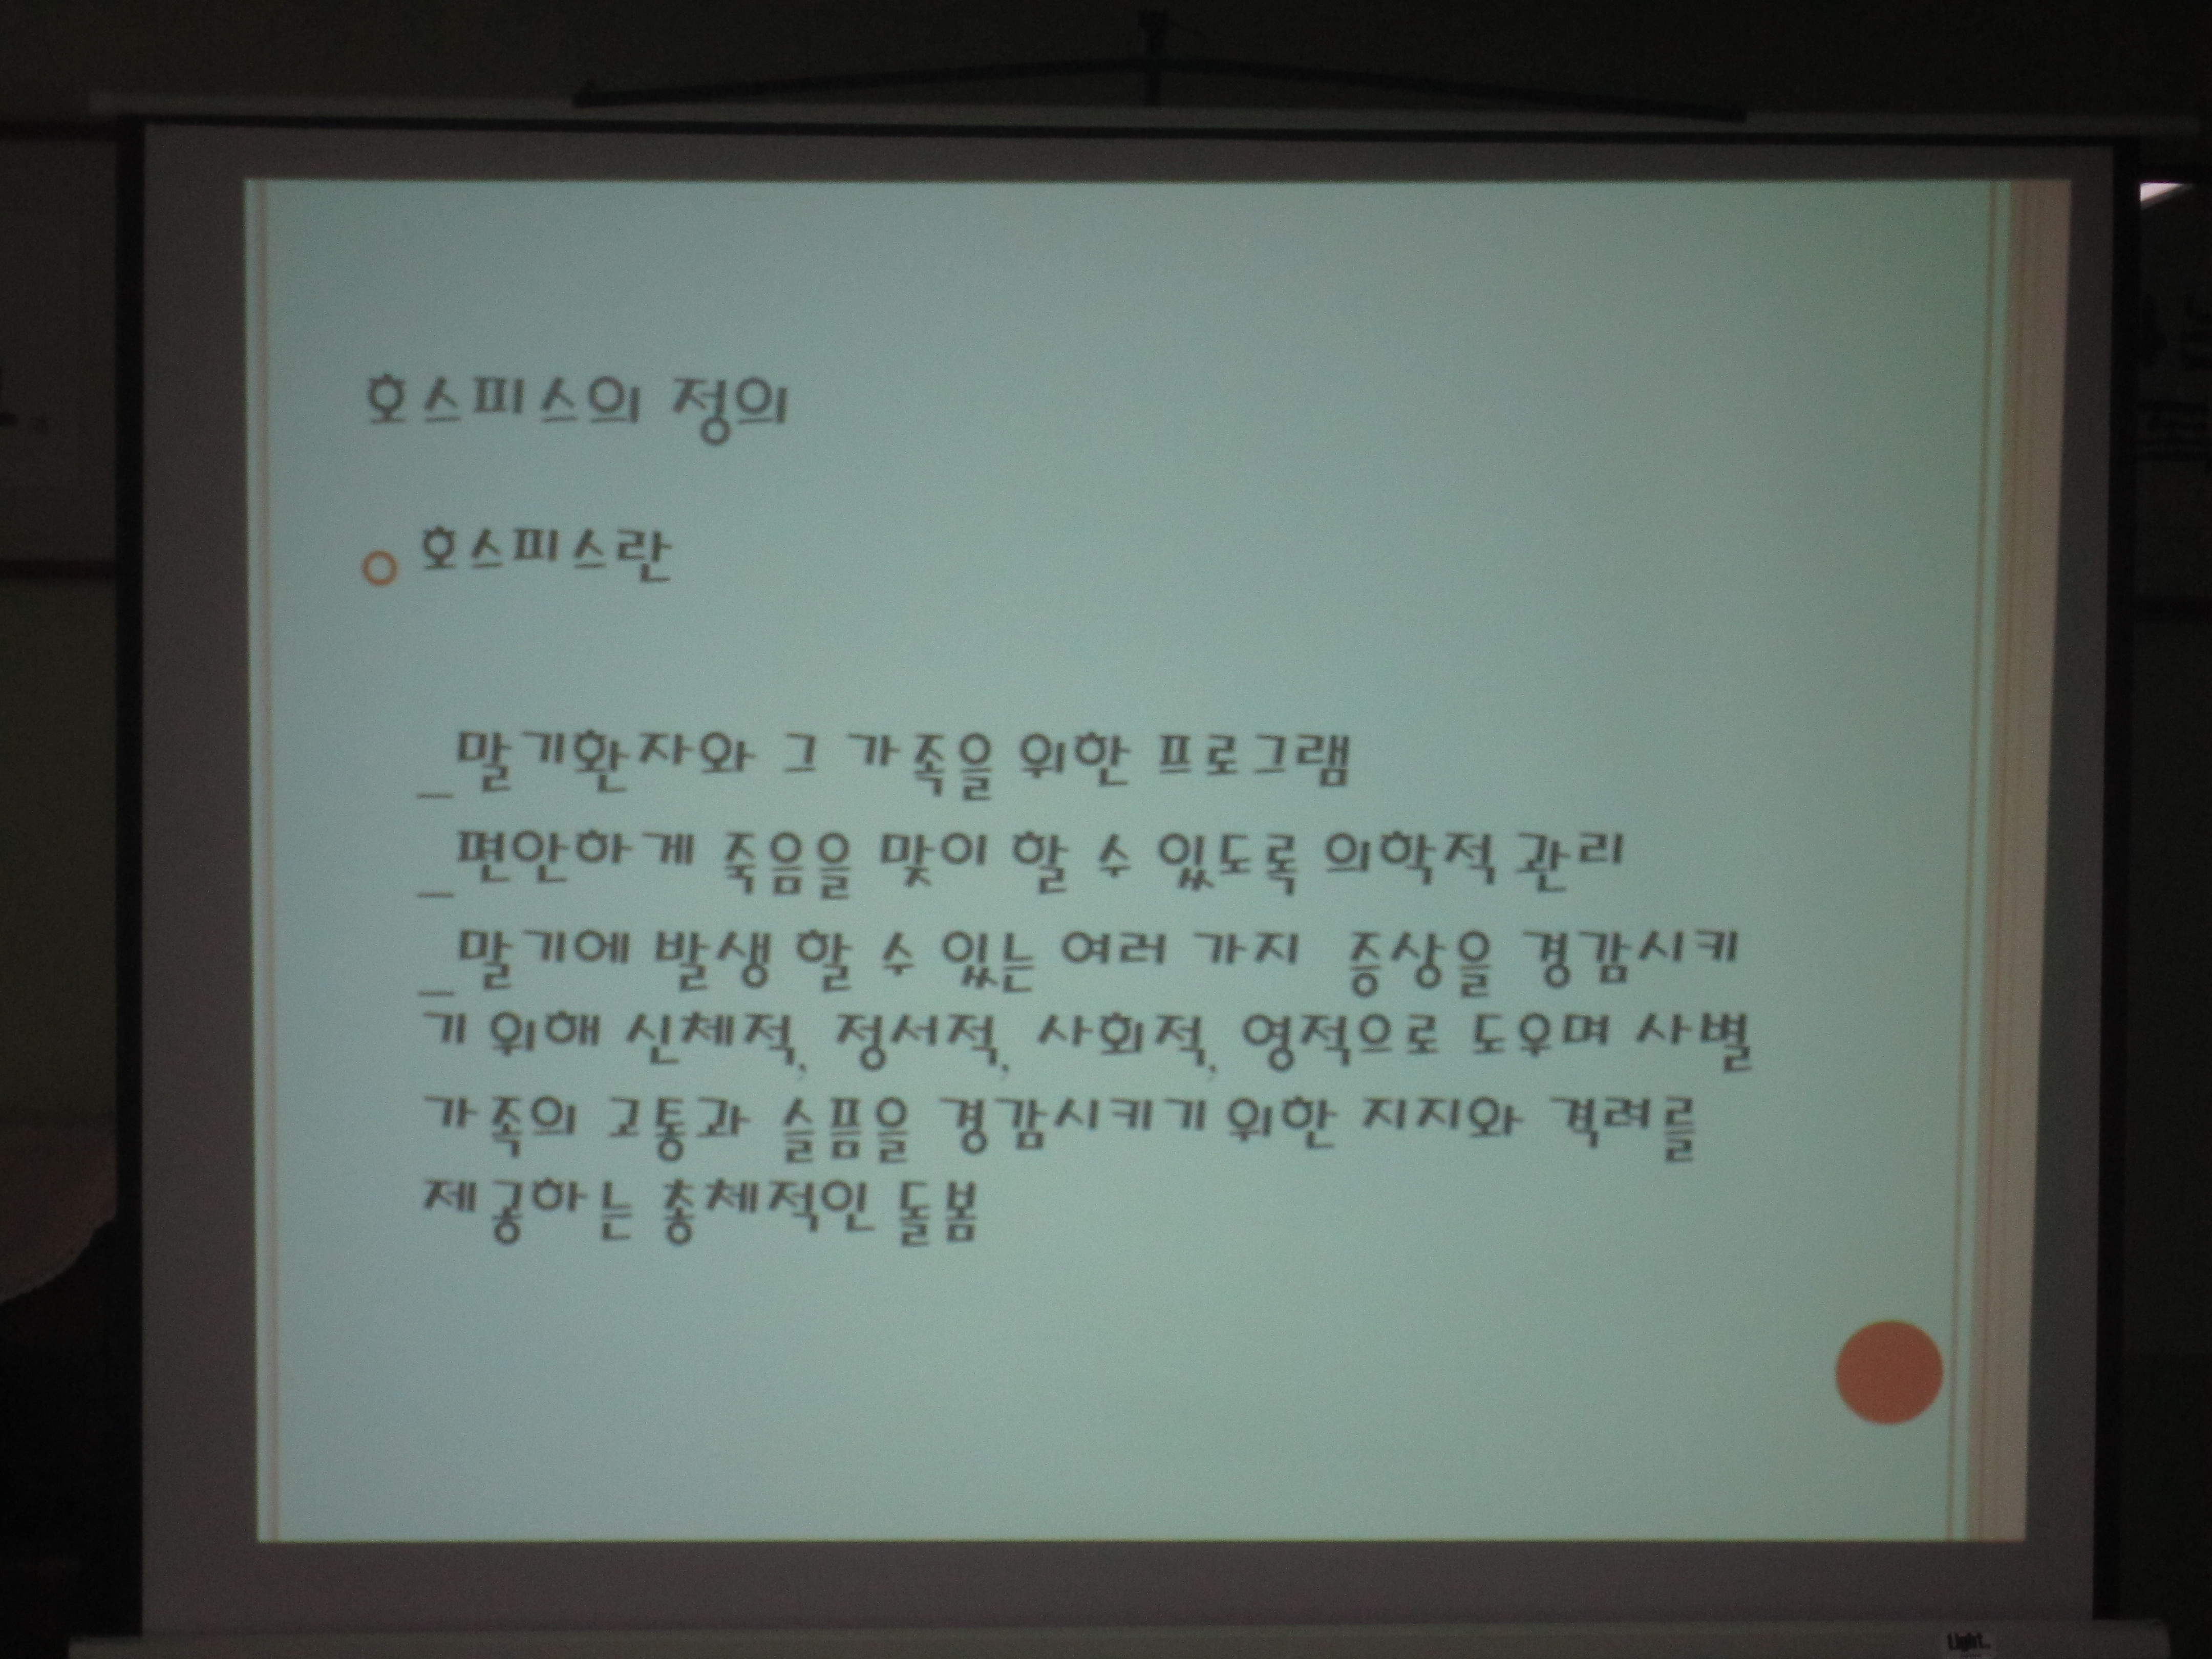 호스피스의 정의
호스피스란
_말기환자와 그 가족을 위한 프로그램
_편안하게 죽음을 맞이 할 수 있도록 의학적 관리
_말기에 발생 할 수 있는 여러 가지 증상을 경감시키
기 위해 신체적, 정서적, 사회적, 영적으로 도우며 사별
가족의 고통과 슬픔을 경감시키기 위한 지지와 격려를
제공하는 총체적인 돌봄
Light..